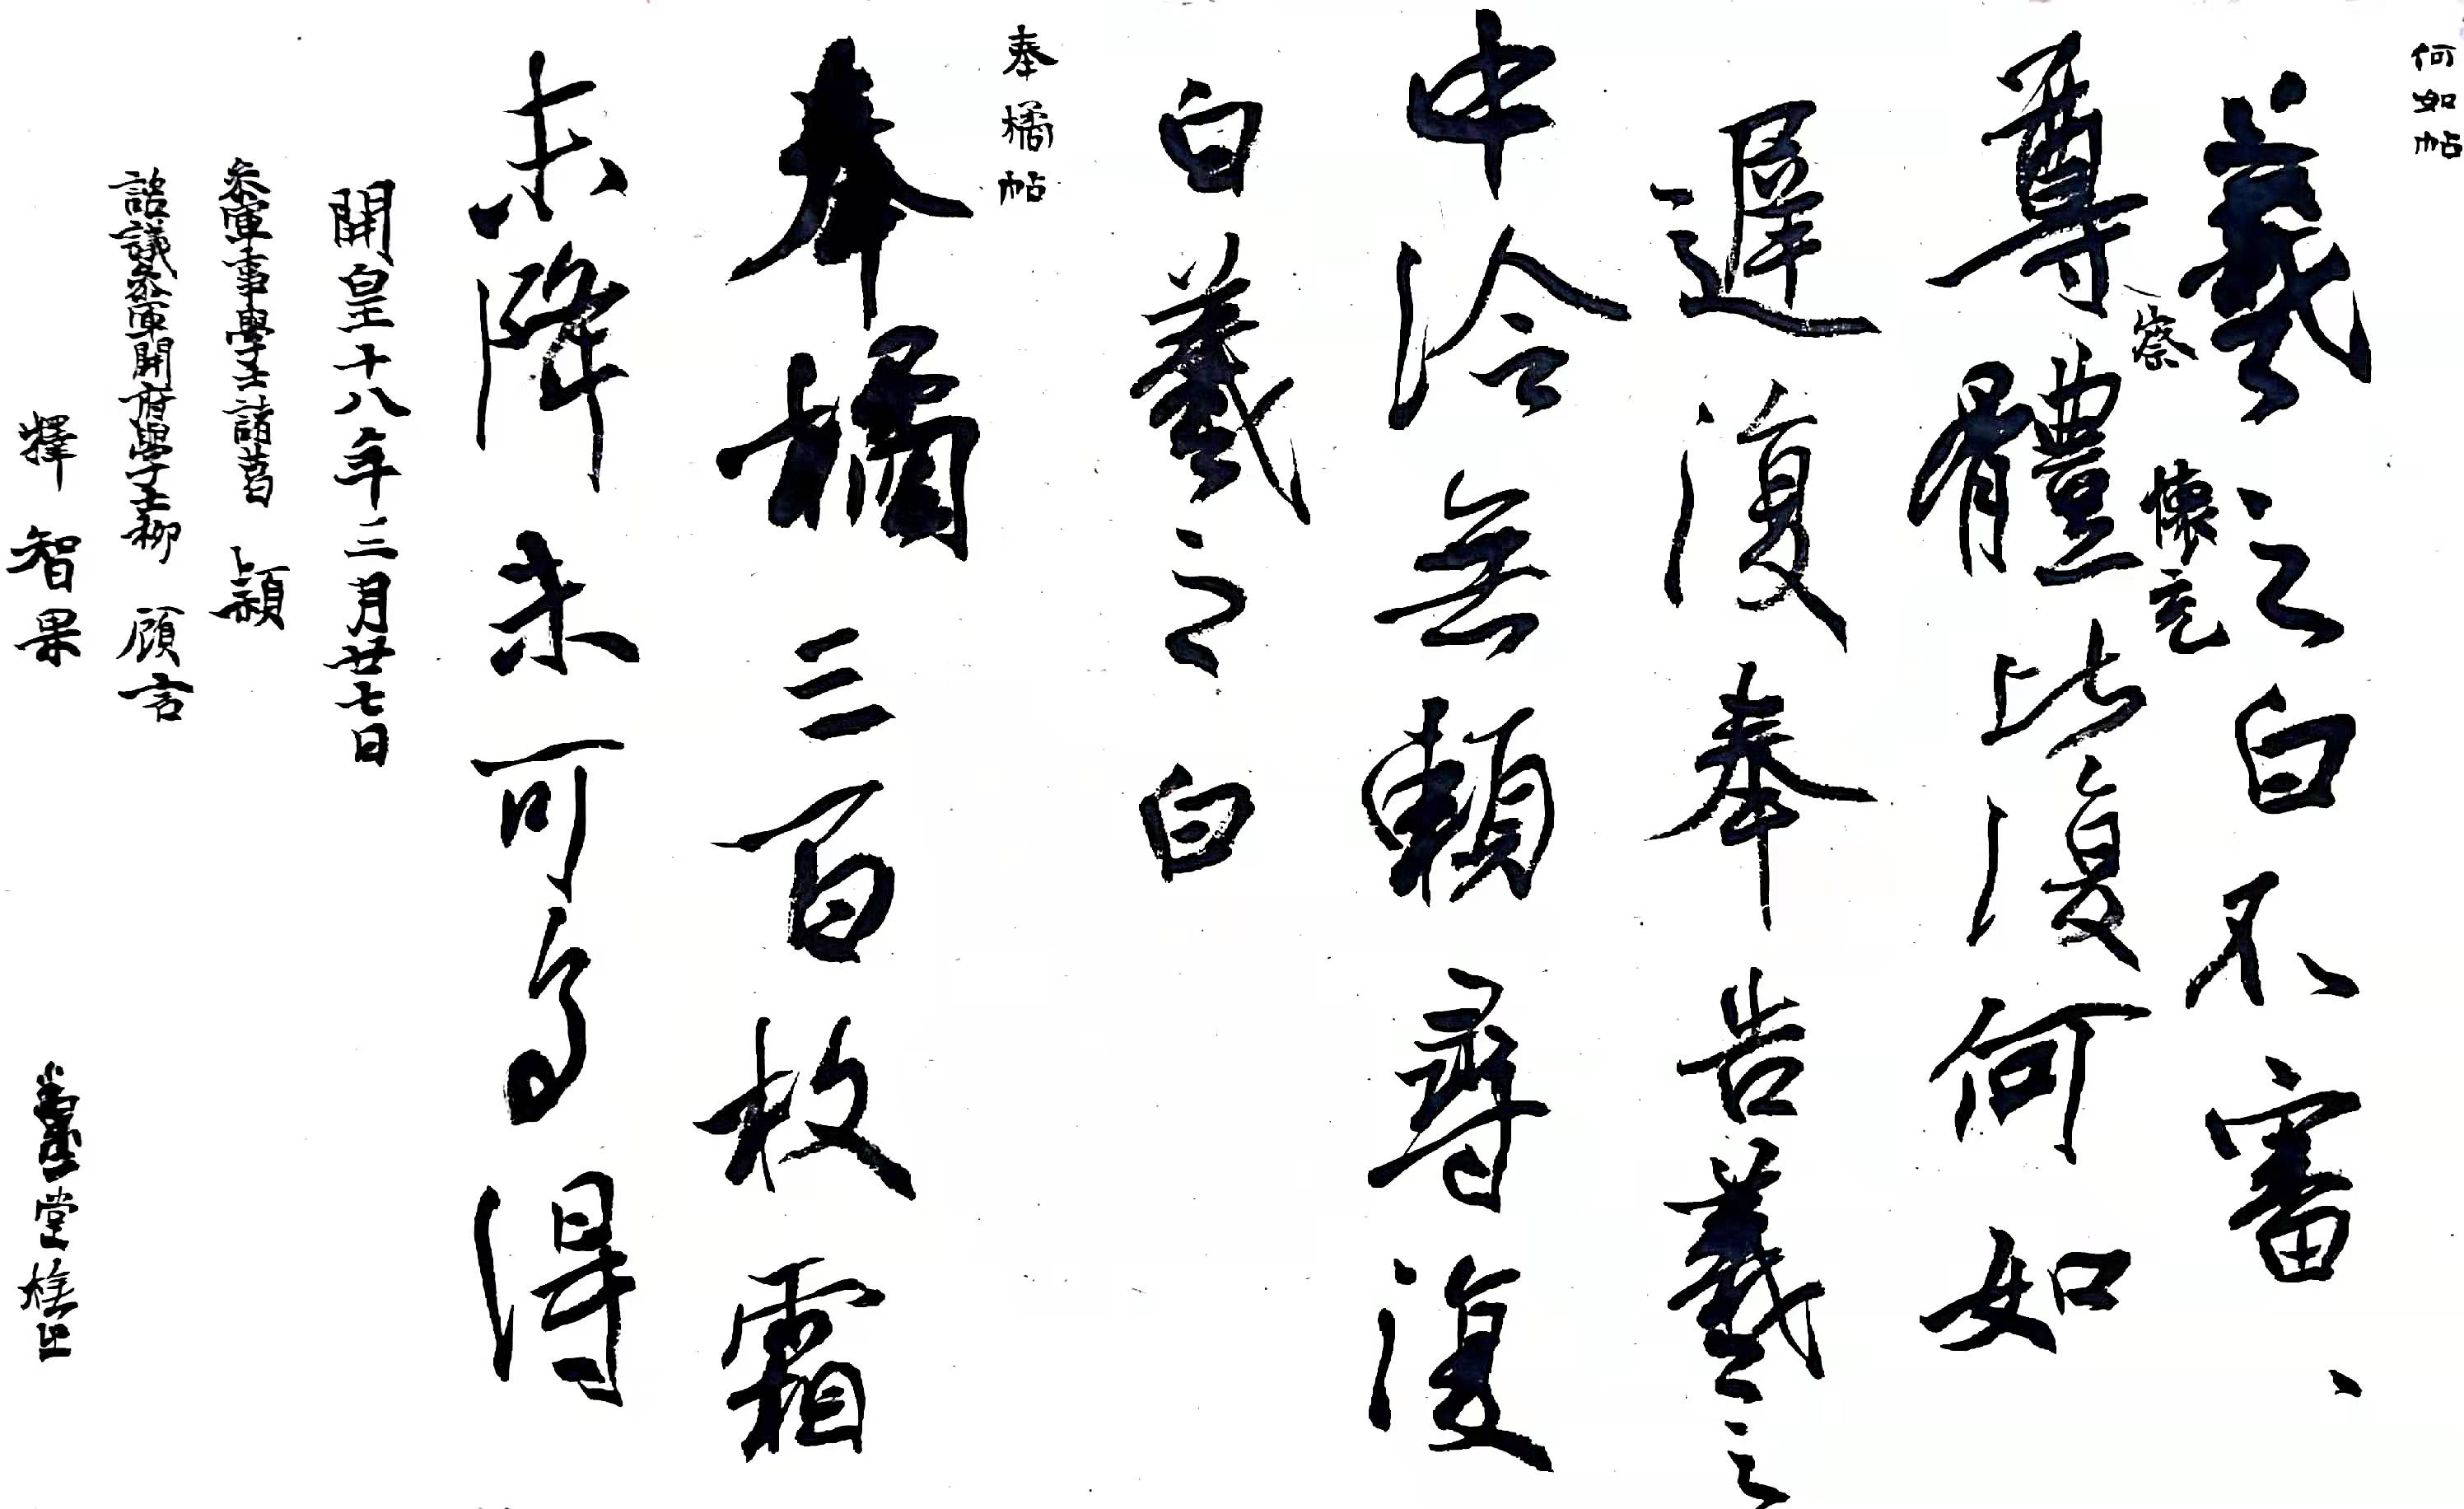 何如帖
羲之白不審、
察
懷充
尊體比復何如
遲復奉告羲之
中冷無賴尋復
白羲之白
奉橘帖
奉橘三百枚霜
未降未可多得
開皇十八年三月廿七日
參軍事學士諸葛穎
諮議參軍開府學士柳顧言
釋智果